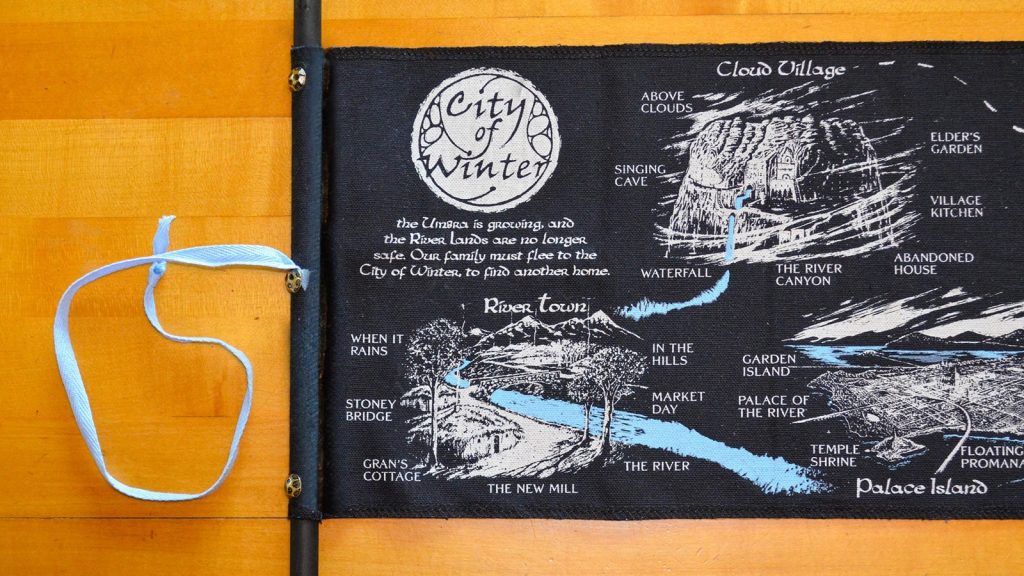 City
of
Winter
the Umbra is growing, and
the River Lands are no longer
safe. Our family must flee to the
City of Winter, to find another home.
Cloud Village
ABOVE
CLOUDS
ELDER'S
GARDEN
SINGING
CAVE
VILLAGE
KITCHEN
WATERFALL
THE RIVER
CANYON
ABANDONED
HOUSE
River Town
WHEN IT
RAINS
IN THE
HILLS
STONEY
BRIDGE
MARKET
DAY
GRAN'S
COTTAGE
THE RIVER
THE NEW MILL
GARDEN
ISLAND
PALACE OF
THE RIVER
TEMPLE
SHRINE
FLOATING
PROMANA
Palace Island